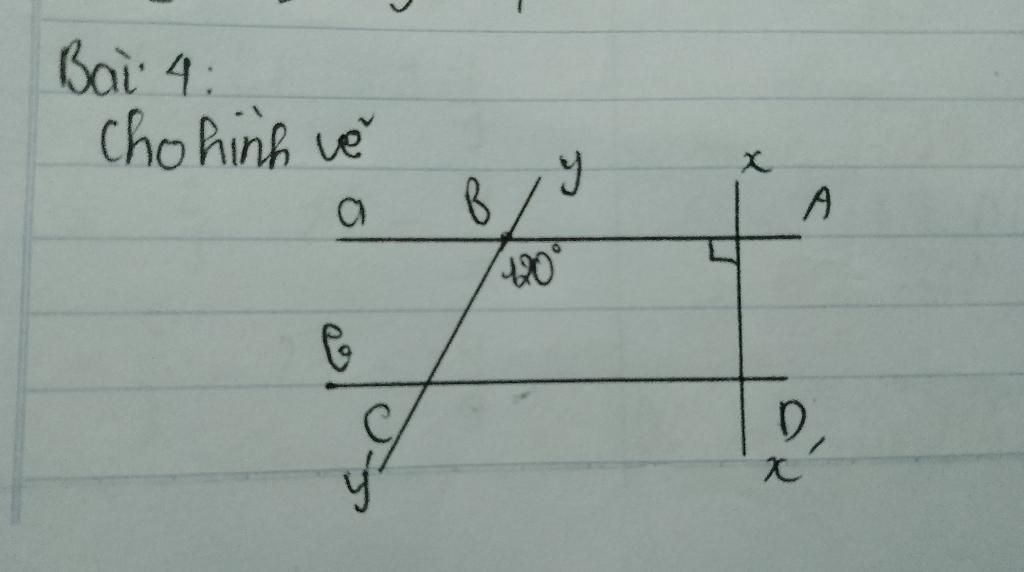 Bài 4:
Cho hình vẽ
y
x
a
B
A
120°
b
C
D
y'
x'